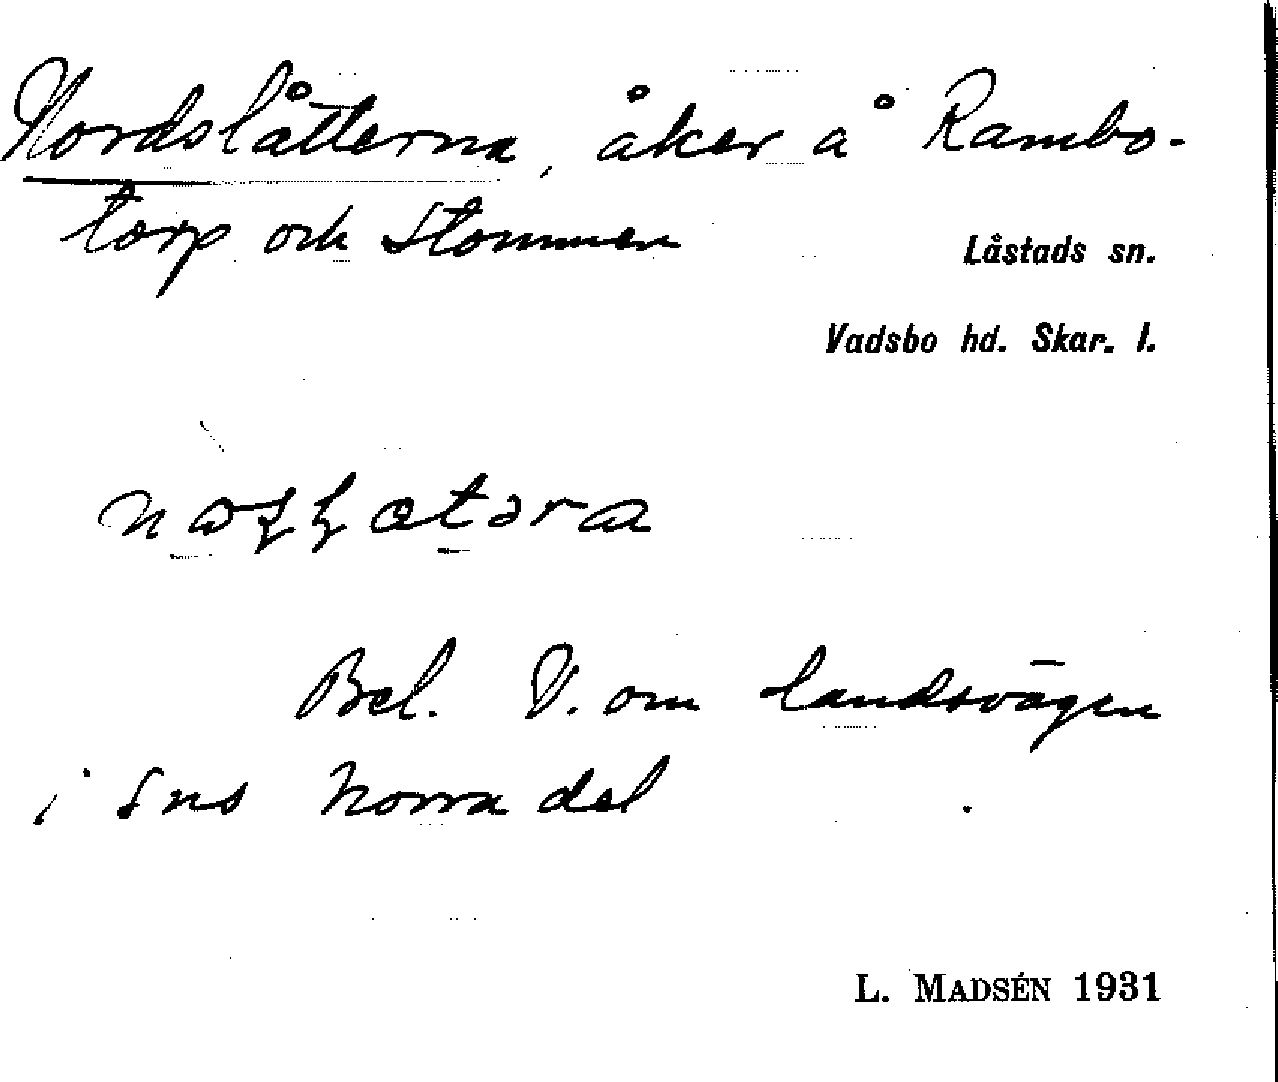 Nordslåtterna, åker å Rambo-
torp och Stommen
Låstads sn.
Vadsbo hd. Skar. l.
Bel. V. om landsvägen
i sns norra del
L. MADSÉN 1931